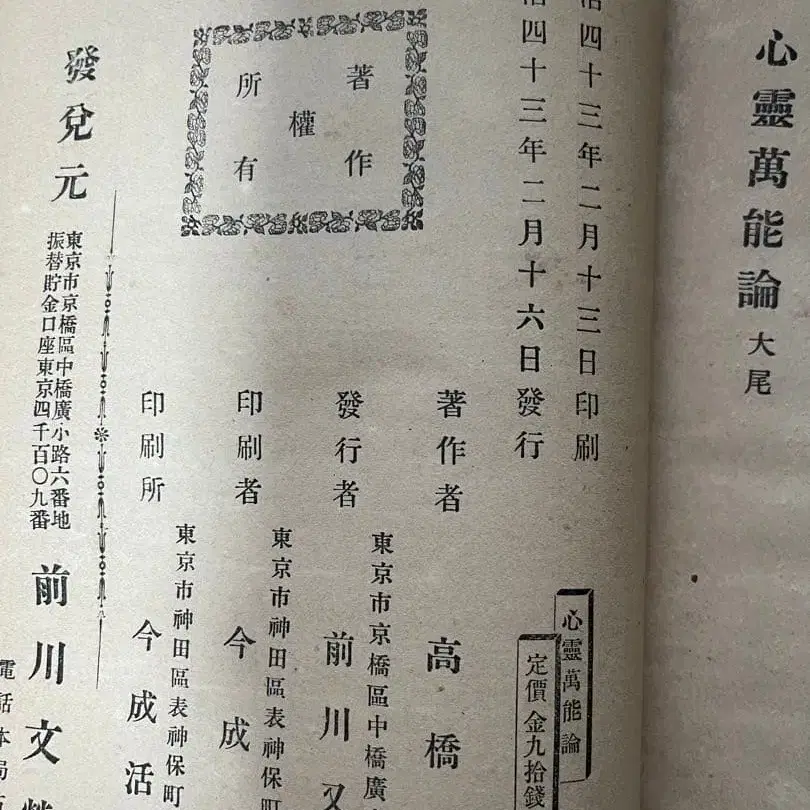 心靈萬能論 大尾
治四十三年二月十三日印刷
治四十三年二月十六日發行
心靈萬能論
定價金九拾錢
著作權所有
著作者 高橋
發行者 東京市京橋區中橋廣
前川又
印刷者 東京市神田區表神保町
今成
印刷所 東京市神田區表神保町
今成活
發兌元
東京市京橋區中橋廣小路六番地
振替貯金口座東京四千百〇九番
前川文榮
電話本局